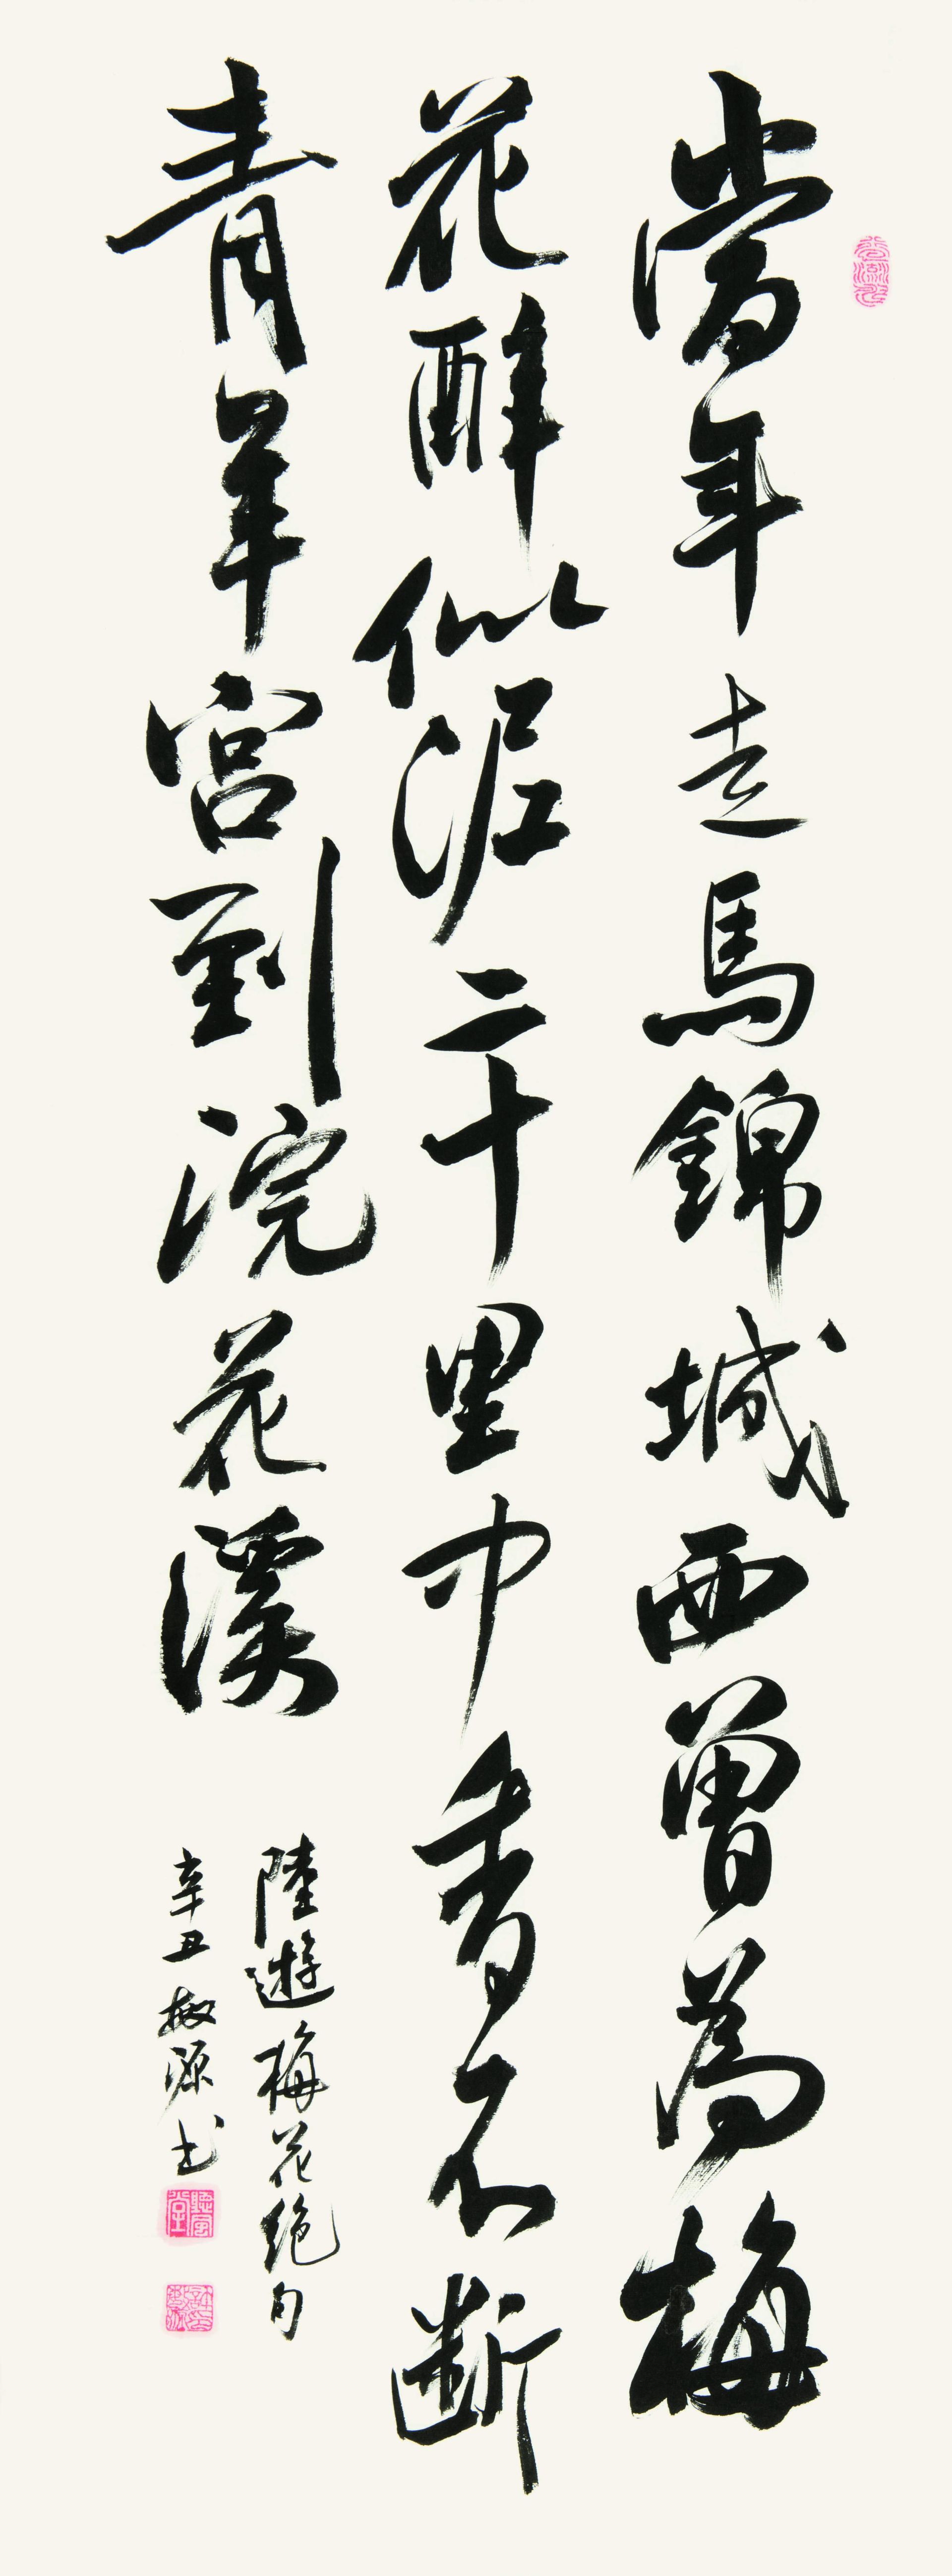 當年走馬錦城西曾為梅
花醉似泥二十里中香不斷
青羊宮到浣花溪
陸遊梅花絕句
辛丑敏源书
聽風堂